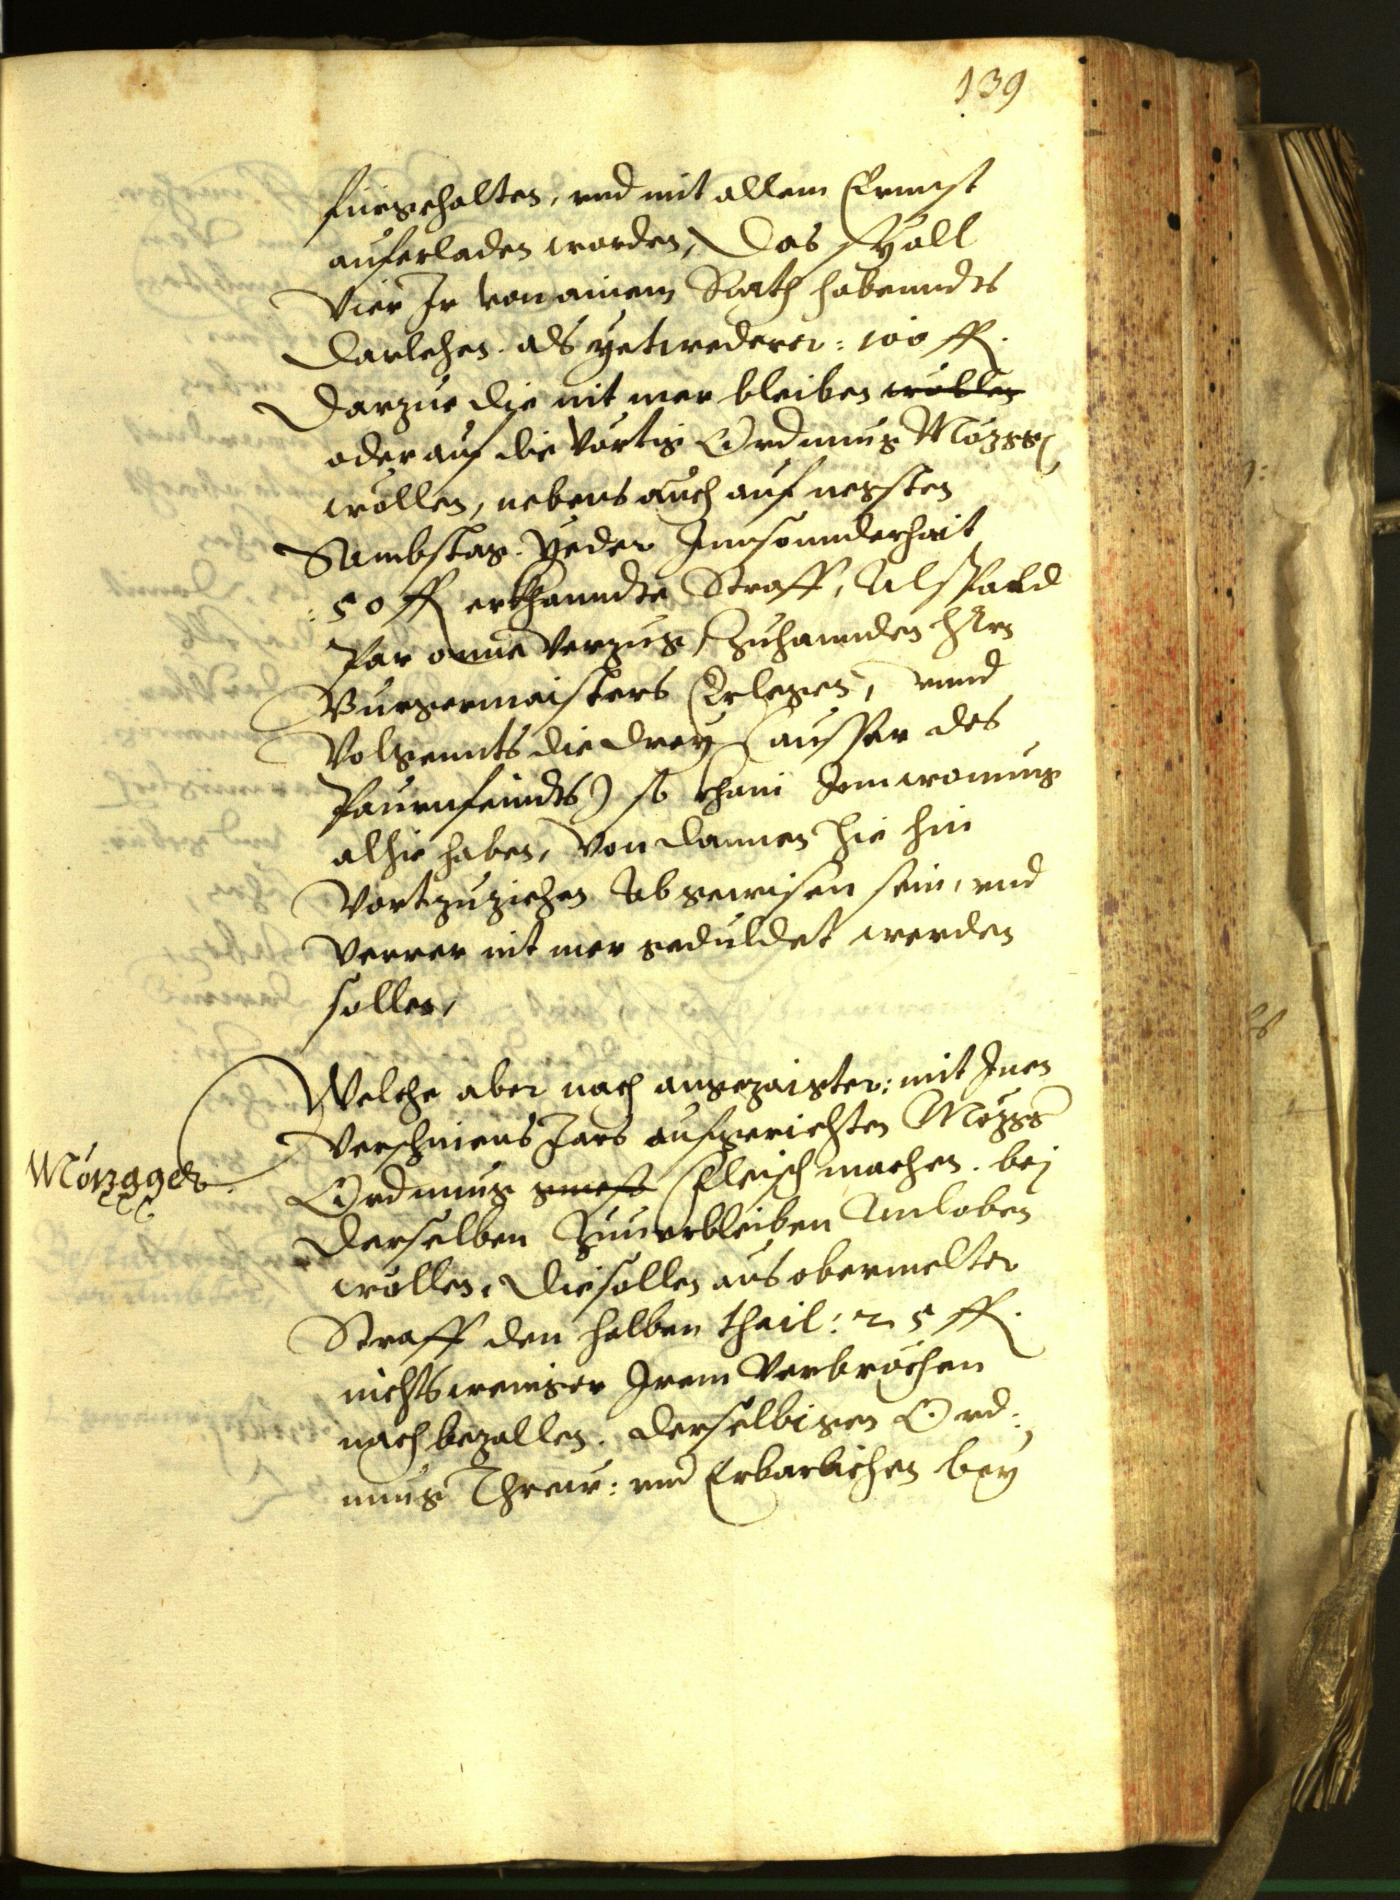 139
fürgehalten, vnd mit allem Ernnst
auferladen worden, Das Sy all
Vier Ir von ainem Rath habenndts
Darlehen. als yetwederer: 100 fl.
Darzue die nit mer bleiben wöllen
oder auf die Vortig Ordnung Mözgg
wöllen, nebens auch auf negsten
Sambstag. Yeder Innsonnderhait
: 50 fl erkhanndte Straff, Als Pald
Par onne Verzug, zuhannden Hern
Burgermaisters Erlegen, vnnd
Volgennts die drey (ausser des
Paurnfeindts) so khain Inwonung
alhie haben, Von dannen hie hin
Vortzuziehen Abgewisen sein, vnd
Verrer nit mer geduldet werden
sollen,
Welche aber nach angezaigter: mit Inen
Verschinens Jars aufgerichten Mözgg
Mözgger.
Ordnung Fleisch machen. bej
Derselben Zuuerbleiben Anloben
wöllen, Die sollen aus obermelter
Straff den halben thail: 25 fl.
nichtsweniger Irem Verbröchen
nach bezallen. Derselbigen Ord:
nung Threw: vnd Erbarlichen bey